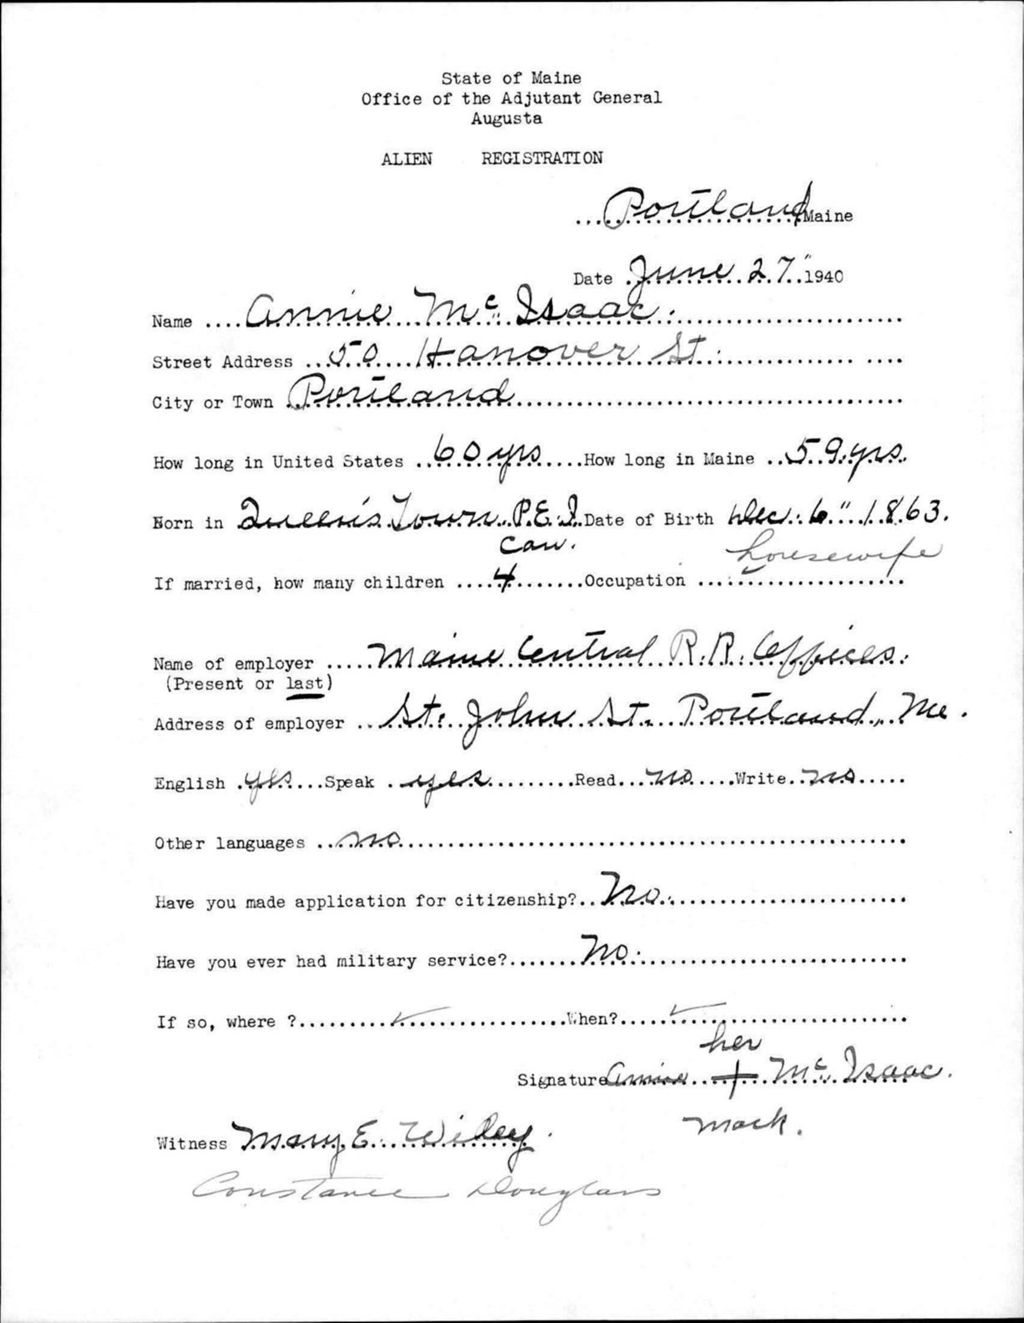 State of Maine
Office of the Adjutant General
Augusta
ALIEN REGISTRATION
Portland, Maine
Date June 27" 1940
Name Annie Mc Isaac.
Street Address 50 Hanover St.
City or Town Portland
How long in United States 60 yrs How long in Maine 59 yrs.
Born in Queen's Town P.E.I. Date of Birth Dec. 6" 1863.
Can.
If married, how many children 4 Occupation housewife
Name of employer Maine Central R.R. Offices.
(Present or last)
Address of employer St. John St. Portland, Me.
English yes Speak yes Read no Write no
Other languages no
Have you made application for citizenship? No.
Have you ever had military service? No.
If so, where ? When?
her
Signature Annie + Mc Isaac.
mark.
Witness Mary E. Wiley.
Constance Douglass